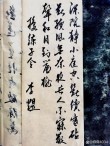 深院静小庭空斷續寒砧
斷續風無奈夜長人不寐數
聲和月到簾櫳
搗練子令 李煜